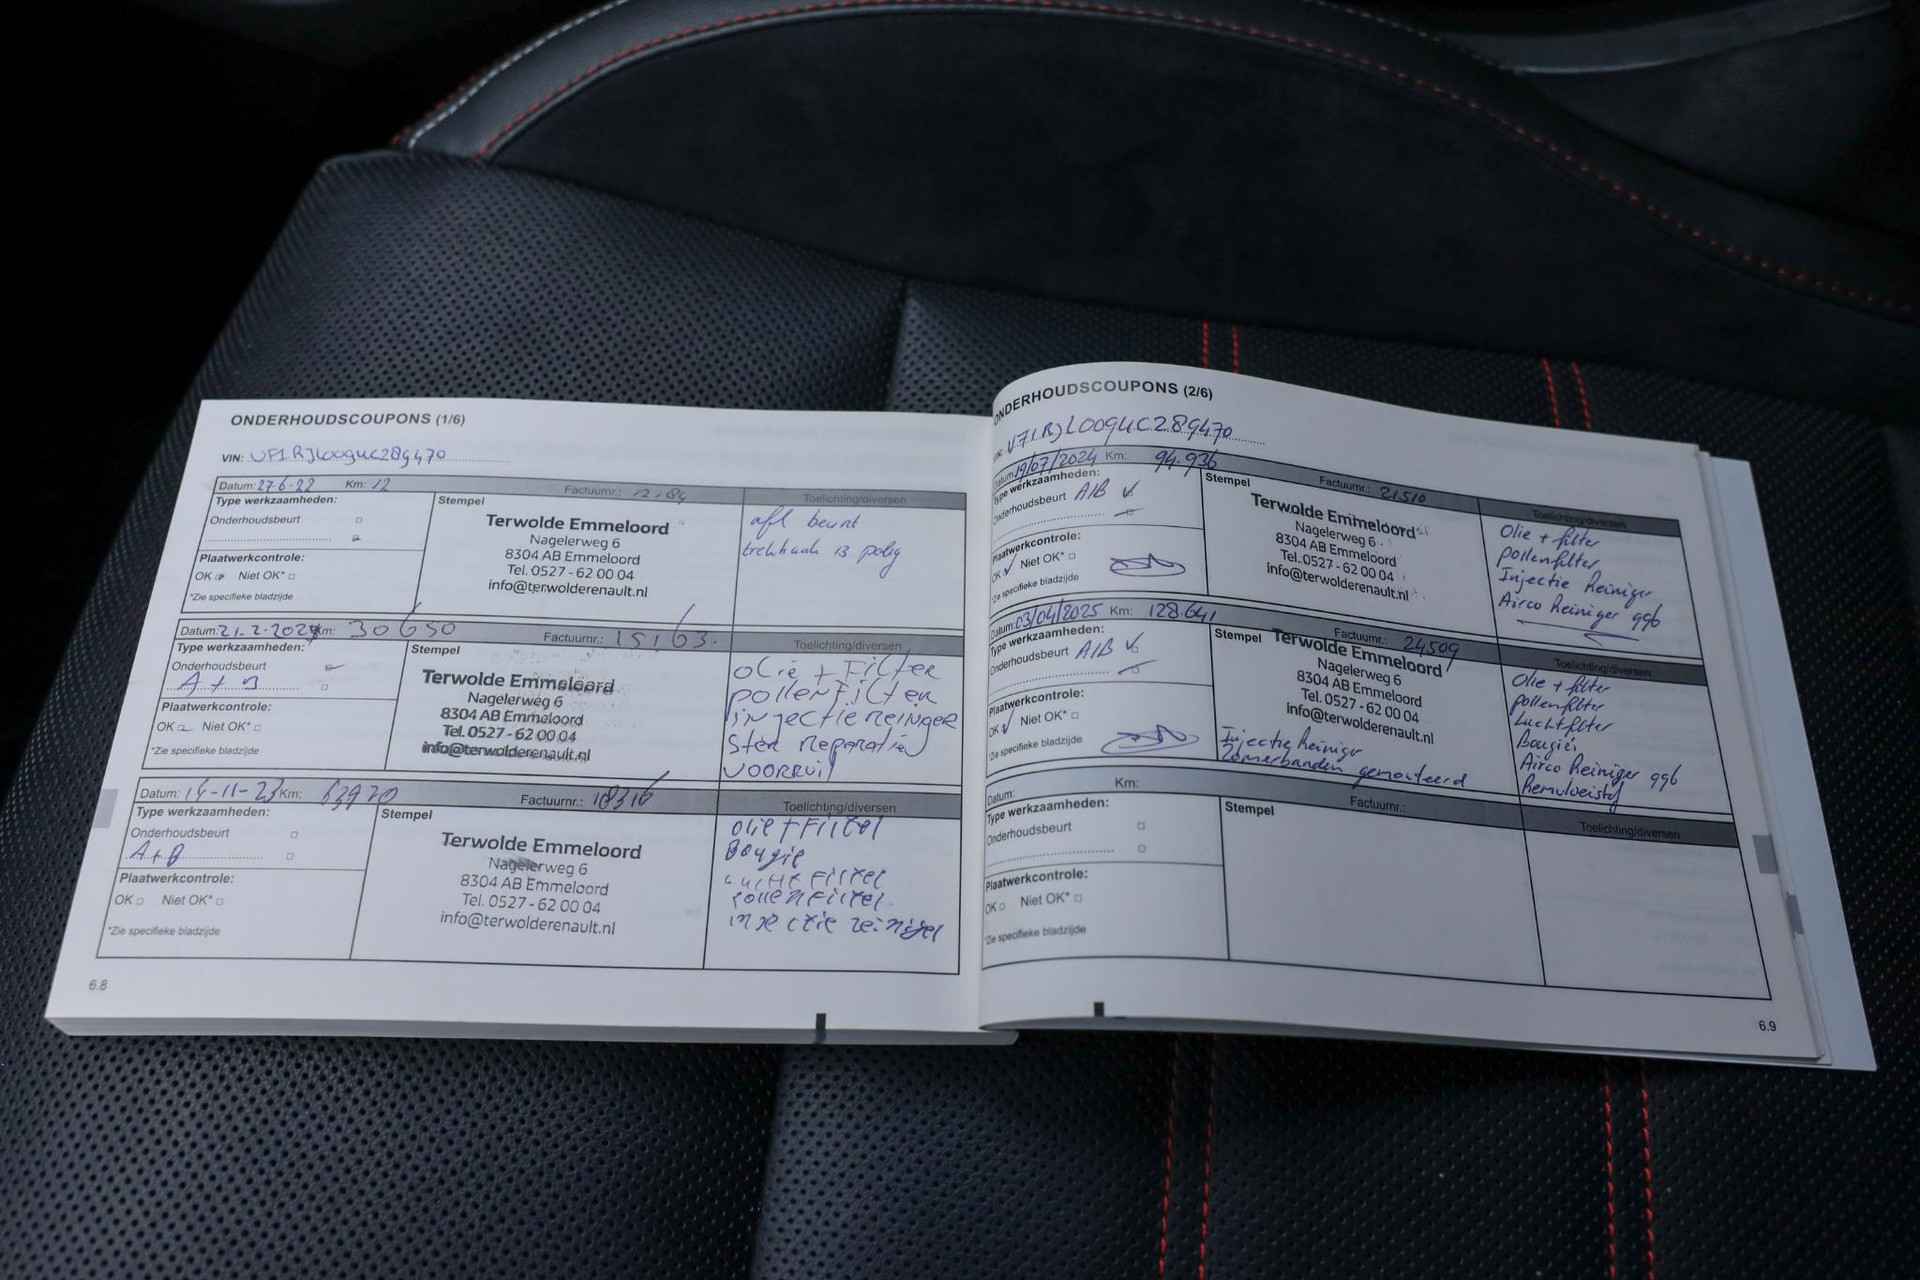 ONDERHOUDSCOUPONS (1/6)
VIN: VF1RJL009UC289470
Datum: 27-6-22 Km: 12 Factuurnr.:
Type werkzaamheden: Stempel Toelichting/diversen
Onderhoudsbeurt
Plaatwerkcontrole:
OK Niet OK*
*Zie specifieke bladzijde
Terwolde Emmeloord
Nagelerweg 6
8304 AB Emmeloord
Tel. 0527 - 62 00 04
info@terwolderenault.nl
afl beurt
trekhaak 13 polig
Datum: 21-2-202 Km: 30650 Factuurnr.: 15163.
Type werkzaamheden: Stempel Toelichting/diversen
Onderhoudsbeurt
A + B
Plaatwerkcontrole:
OK Niet OK*
*Zie specifieke bladzijde
Terwolde Emmeloord
Nagelerweg 6
8304 AB Emmeloord
Tel. 0527 - 62 00 04
info@terwolderenault.nl
olie + Filter
pollenfilter
injectie reiniger
Ster reparatie
voorruit
Datum: 14-11-23 Km: 63970 Factuurnr.: 18316
Type werkzaamheden: Stempel Toelichting/diversen
Onderhoudsbeurt
A+B
Plaatwerkcontrole:
OK Niet OK*
*Zie specifieke bladzijde
Terwolde Emmeloord
Nagelerweg 6
8304 AB Emmeloord
Tel. 0527 - 62 00 04
info@terwolderenault.nl
olie + Filter
Bougie
Lucht Filter
Pollenfilter
injectie reiniger
6.8
ONDERHOUDSCOUPONS (2/6)
VF1RJL009UC289470
Datum: 19/07/2024 Km: 94.936 Factuurnr.: 21510
Type werkzaamheden: Stempel Toelichting/diversen
Onderhoudsbeurt A/B
Plaatwerkcontrole:
OK Niet OK*
*Zie specifieke bladzijde
Terwolde Emmeloord
Nagelerweg 6
8304 AB Emmeloord
Tel. 0527 - 62 00 04
info@terwolderenault.nl
Olie + filter
pollenfilter
Injectie Reiniger
Airco Reiniger 996
Datum: 03/04/2025 Km: 128.641 Factuurnr.: 24509
Type werkzaamheden: Stempel Toelichting/diversen
Onderhoudsbeurt A/B
Plaatwerkcontrole:
OK Niet OK*
*Zie specifieke bladzijde
Terwolde Emmeloord
Nagelerweg 6
8304 AB Emmeloord
Tel. 0527 - 62 00 04
info@terwolderenault.nl
Injectie Reiniger
Zomerbanden gemonteerd
Olie + filter
pollenfilter
Luchtfilter
Bougies
Airco Reiniger 996
Remvloeistof
Datum: Km: Factuurnr.:
Type werkzaamheden: Stempel Toelichting/diversen
Onderhoudsbeurt
Plaatwerkcontrole:
OK Niet OK*
*Zie specifieke bladzijde
6.9